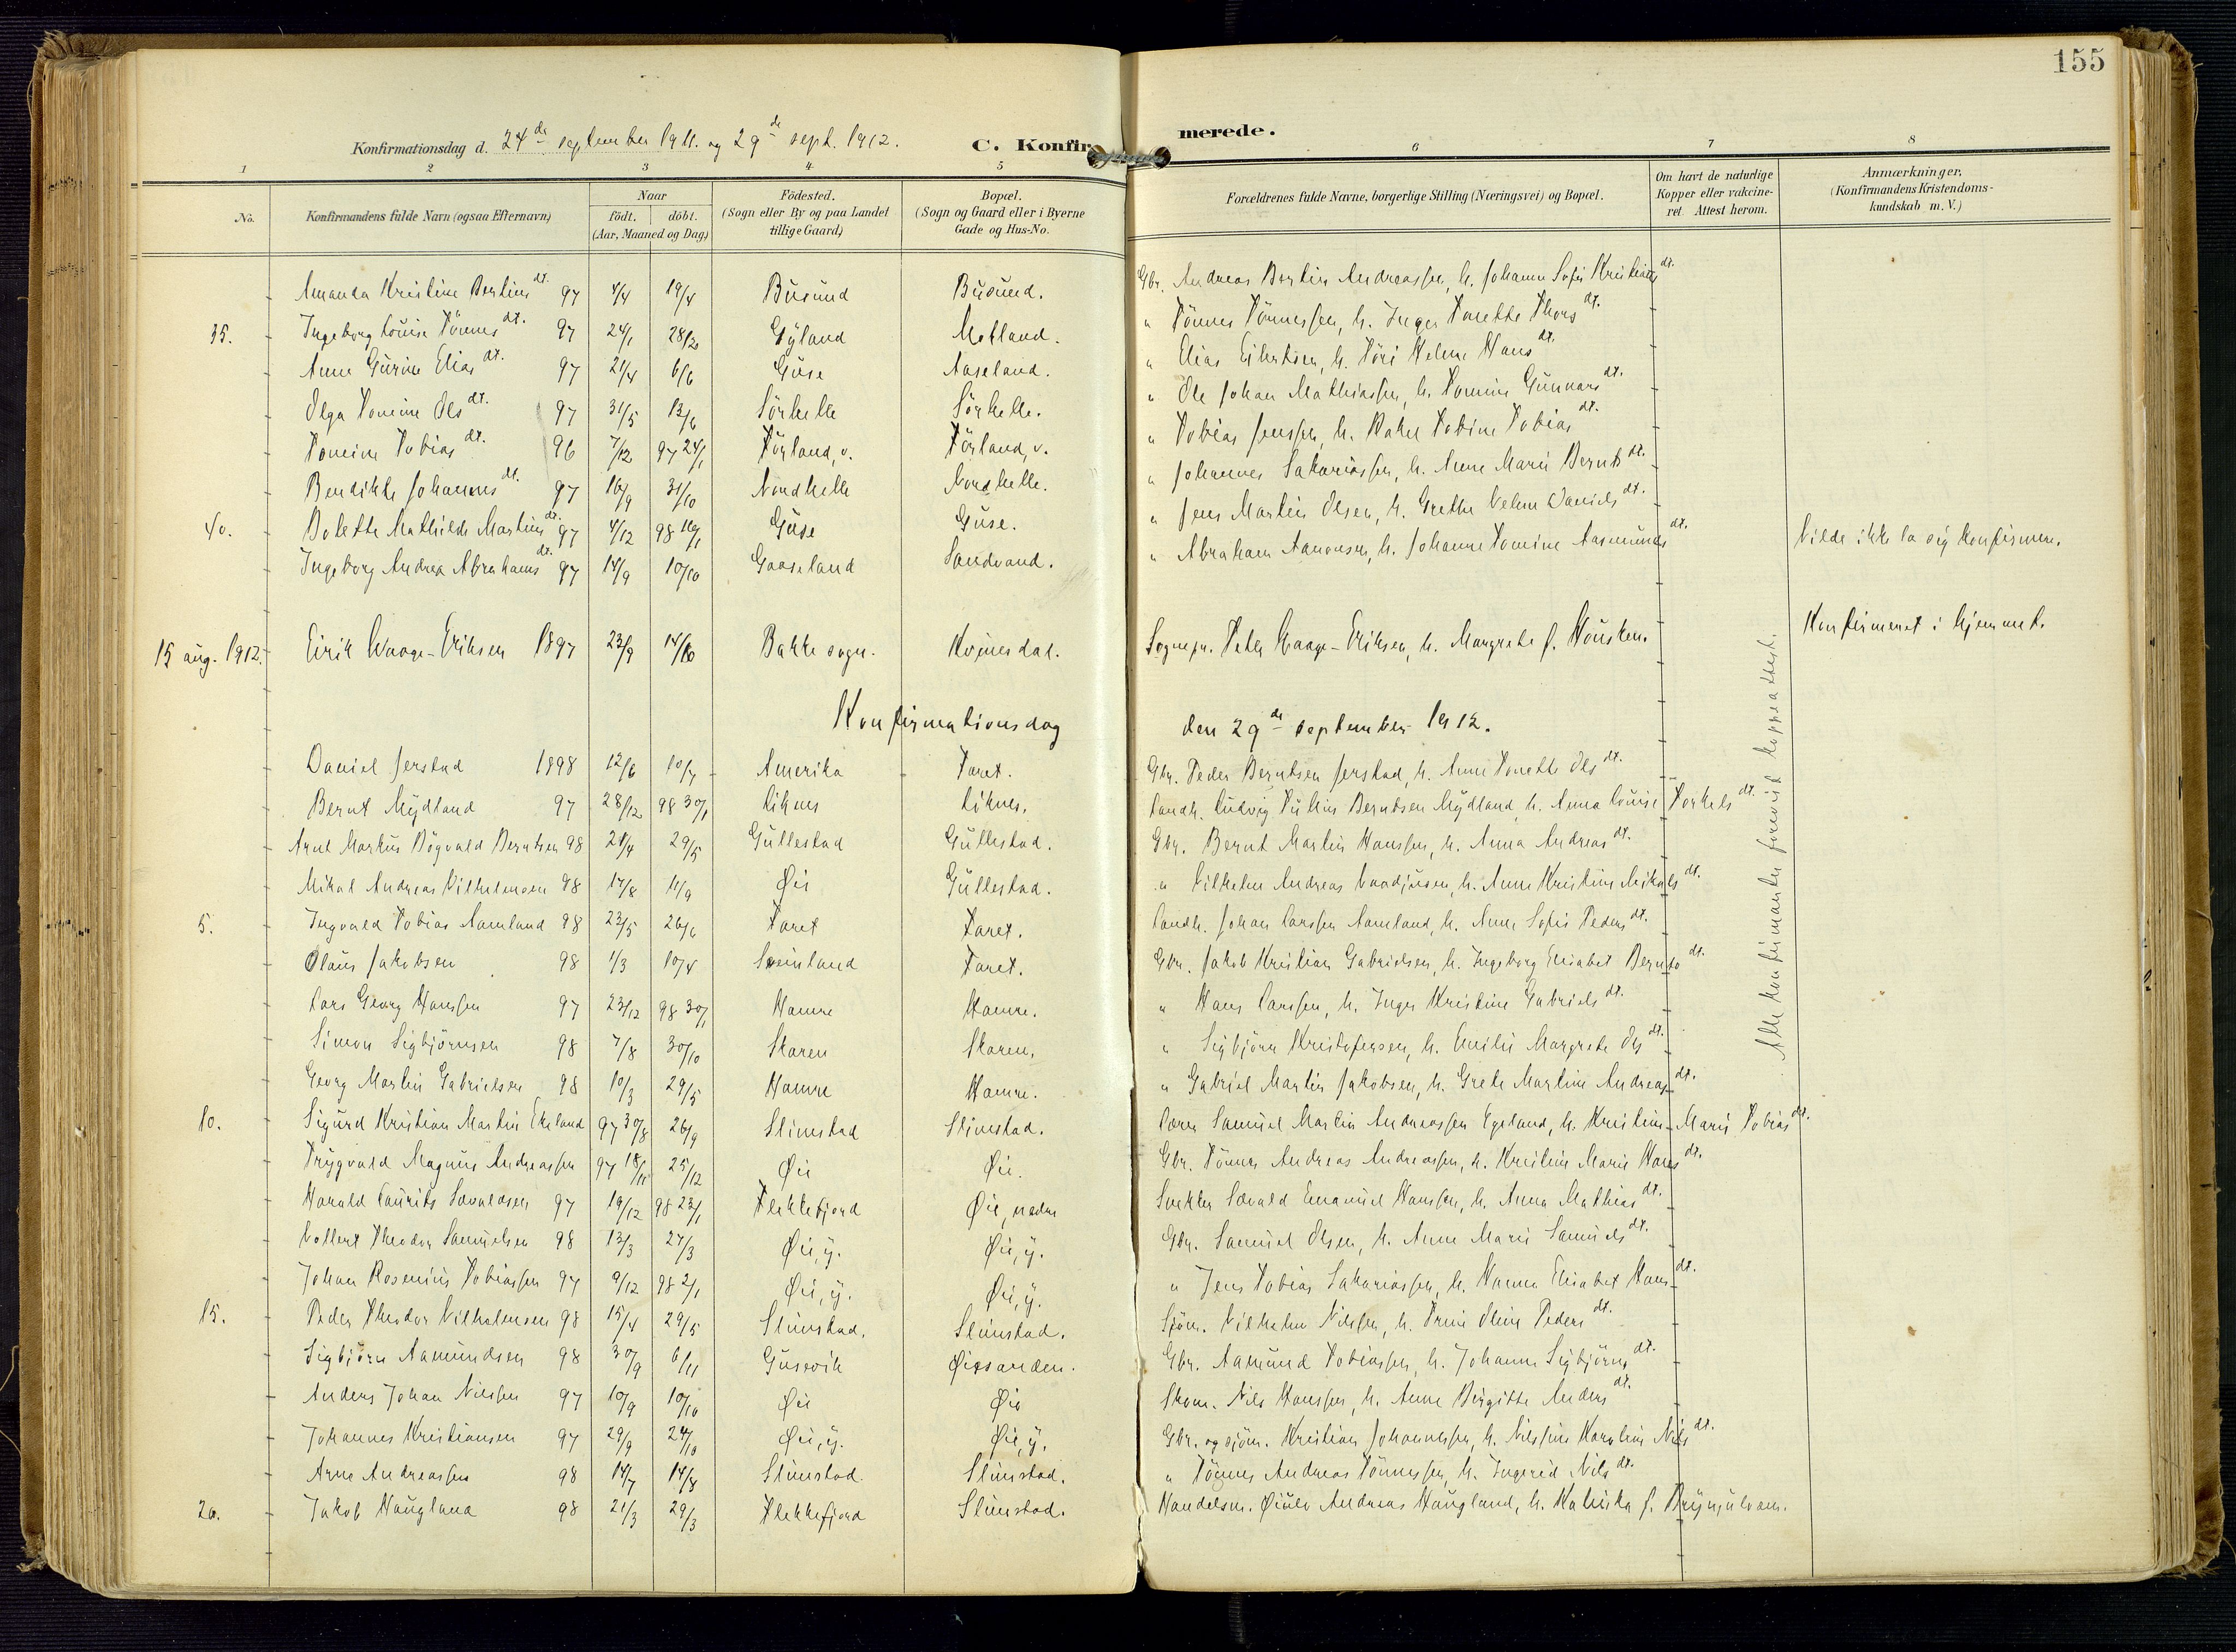 155
Konfirmationsdag d. 24de september 1911. og 29de sept. 1912. C. Konfirmerede.
1 2 3 4 5 6 7 8
No. Konfirmandens fulde Navn (ogsaa Efternavn) Naar födt. döbt. (Aar, Maaned og Dag) Födested. (Sogn eller By og paa Landet tillige Gaard) Bopæl. (Sogn og Gaard eller i Byerne Gade og Hus-No. Forældrenes fulde Navne, borgerlige Stilling (Næringsvei) og Bopæl. Om havt de naturlige Kopper eller vakcineret Attest herom. Anmærkninger. (Konfirmandens Kristendomskundskab m. V.)
Amanda Kristine Bertins dt. 97 4/4 19/4 Busund Busund. Gbr. Andreas Bertin Andreassen, h. Johanne Sofie Kristians dt.
35. Ingeborg Louise Tönnes dt. 97 24/1 28/2 Gyland Motland. " Tönnes Tönnessen, h. Inger Tonette Thors dt.
Anne Gurine Elias dt. 97 21/4 6/6 Guse Aaseland. " Elias Eilertsen, h. Töri Helene Hans dt.
Olga Tomine Ols dt. 97 31/5 13/6 Sörhelle Sörhelle. " Ole Johan Mathiassen, h. Tomine Gunnars dt.
Tomine Tobias dt. 96 7/12 97 24/1 Törland, v. Törland, v. " Tobias Jenssen, h. Rakel Tobine Tobias dt.
Bendikte Johannes dt. 97 16/9 31/10 Nordhelle Nordhelle. " Johannes Sakariassen, h. Anne Marie Bernts dt.
40. Bolette Mathilde Martins dt. 97 4/12 98 16/1 Guse Guse. " Jens Martin Olsen, h. Grethe Velene Daniels dt.
Ingeborg Andrea Abrahams dt. 97 14/9 10/10 Gaaseland Sandvand. " Abraham Aanonsen, h. Johanne Tomine Aasmunds dt. Vilde ikke la sig konfirmere.
15 aug. 1912. Eirik Waage-Eriksen 1897 23/9 14/10 Bakke sogn. Kvinesdal. Sognepr. Peter Waage-Eriksen, h. Margrete f. Housken. Konfirmeret i hjemmet.
Konfirmationsdag den 29de september 1912.
Alle konfirmanter forevist koppeattest.
Daniel Jerstad 1898 12/6 10/7 Amerika Faret. Gbr. Peder Berntsen Jerstad, h. Anne Tonette Ols dt.
Bernt Mydland 97 28/12 98 30/1 Liknes Liknes. Landh. Ludvig Julius Berntsen Mydland, h. Anna Louise Torkels dt.
Arnt Markus Bögvald Berntsen 98 21/4 29/5 Gullestad Gullestad. Gbr. Bernt Martin Hanssen, h. Anna Andreas dt.
Mikal Andreas Vilhelmsen 98 17/8 11/9 Øie Gullestad. " Vilhelm Andreas Vaadjusen, h. Anne Kristine Mikals dt.
5. Ingvald Tobias Aamland 98 23/5 26/6 Faret Faret. Landh. Johan Larssen Aamland, h. Anne Sofie Peders dt.
Olaus Jakobsen 98 1/3 10/4 Sveinland Faret. Gbr. Jakob Kristian Gabrielsen, h. Ingeborg Elisabet Bernts dt.
Lars Georg Hanssen 97 23/12 98 30/1 Hamre Hamre. " Hans Larssen, h. Inger Kristine Gabriels dt.
Simon Sigbjörnsen 98 7/8 30/10 Skaren Skaren. " Sigbjörn Kristofersen, h. Emilie Margrete Ols dt.
Georg Martin Gabrielsen 98 10/3 29/5 Hamre Hamre. " Gabriel Martin Jakobsen, h. Grete Martine Andreas dt.
10. Sigurd Kristian Martin Ekeland 97 30/8 26/9 Slimstad Slimstad. Lærer Samuel Martin Andreassen Egeland, h. Kristine Marie Tobias dt.
Trygvald Magnus Andreassen 97 18/11 25/12 Øie Øie. Gbr. Tönnes Andreas Andreassen, h. Kristine Marie Hans dt.
Harald Laurits Sævaldsen 97 19/12 98 23/1 Flekkefjord Øie, nedre Snekker Sævald Emanuel Hanssen, h. Anna Mathias dt.
Vollert Theodor Samuelsen 98 13/3 27/3 Øie, y. Øie, y. Gbr. Samuel Olsen, h. Anne Marie Samuels dt.
Johan Rosenius Tobiassen 97 9/12 98 2/1 Øie, y. Øie, y. " Jens Tobias Sakariassen, h. Hanna Elisabet Hans dt.
15. Peder Theodor Vilhelmsen 98 15/4 29/5 Slimstad. Slimstad. Sjöm. Vilhelm Nilssen, h. Trine Oline Peders dt.
Sigbjörn Aamundsen 98 30/9 6/11 Gusevik Øiesanden. Gbr. Aamund Tobiassen, h. Johanne Sigbjörns dt.
Anders Johan Nilssen 97 10/9 10/10 Øie Øie Skom. Nils Hanssen, h. Anne Birgitte Anders dt.
Johannes Kristiansen 97 29/9 24/10 Øie, y. Øie, y. Gbr. og sjöm. Kristian Johannessen, h. Nilsine Karoline Nils dt.
Arne Andreassen 98 14/7 14/8 Slimstad. Slimstad. " Tönnes Andreas Tönnessen, h. Ingerid Nils dt.
20. Jakob Haugland 98 21/3 29/3 Flekkefjord Slimstad. Handelsm. Øiulv Andreas Haugland, h. Katinka f. Brynjulvsen.